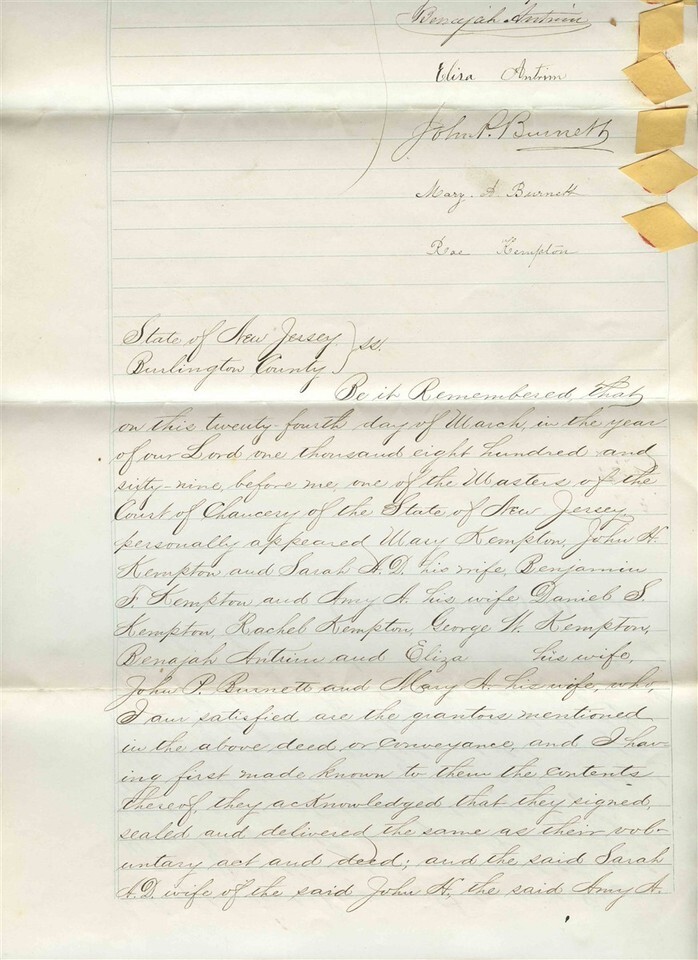 Benajah Antrim
Eliza Antrim
John P. Burnett
Mary A Burnett
Kempton
State of New Jersey } ss.
Burlington County
Be it Remembered, that
on this twenty-fourth day of March, in the year
of our Lord one thousand eight hundred and
sixty-nine, before me, one of the Masters of the
Court of Chancery of the State of New Jersey
personally appeared Mary Kempton, John H.
Kempton and Sarah A.D. his wife, Benjamin
F. Kempton and Amy A. his wife Daniel S
Kempton, Rachel Kempton, George W. Kempton,
Benajah Antrim and Eliza his wife,
John P. Burnett and Mary A. his wife, who,
I am satisfied are the grantors mentioned
in the above deed or conveyance, and I hav-
ing first made known to them the contents
thereof, they acknowledged that they signed,
sealed and delivered the same as their vol-
untary act and deed; and the said Sarah
A.D. wife of the said John H, the said Amy A.